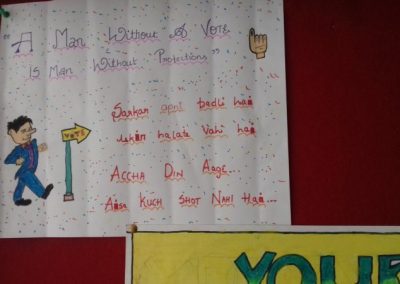 "A Man Without A Vote
Is Man Without Protections"
VOTE
Sarkar apni badli hai
lekin halate vahi hai
Accha Din Aage
Aisa Kuch Shot Nahi Hai...
YOUR